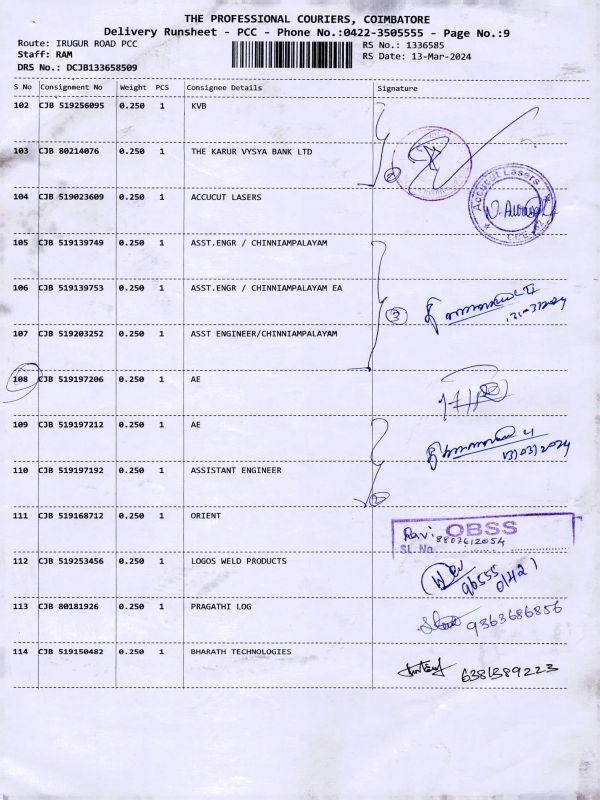 THE PROFESSIONAL COURIERS, COIMBATORE
Delivery Runsheet - PCC - Phone No.:0422-3505555 - Page No.:9
Route: IRUGUR ROAD PCC
RS No.: 1336585
Staff: RAM
RS Date: 13-Mar-2024
DRS No.: DCJB133658509
S No Consignment No Weight PCS Consignee Details Signature
102 CJB 519256095 0.250 1 KVB
103 CJB 80214076 0.250 1 THE KARUR VYSYA BANK LTD
104 CJB 519023609 0.250 1 ACCUCUT LASERS
Accucut Lasers
105 CJB 519139749 0.250 1 ASST.ENGR / CHINNIAMPALAYAM
106 CJB 519139753 0.250 1 ASST.ENGR / CHINNIAMPALAYAM EA
3
107 CJB 519203252 0.250 1 ASST ENGINEER/CHINNIAMPALAYAM
108 CJB 519197206 0.250 1 AE
109 CJB 519197212 0.250 1 AE
13/03/2024
110 CJB 519197192 0.250 1 ASSISTANT ENGINEER
2
111 CJB 519168712 0.250 1 ORIENT
OBSS
Ravi
8807612054
SL No
112 CJB 519253456 0.250 1 LOGOS WELD PRODUCTS
96555
01421
113 CJB 80181926 0.250 1 PRAGATHI LOG
9363686856
114 CJB 519150482 0.250 1 BHARATH TECHNOLOGIES
6381389223